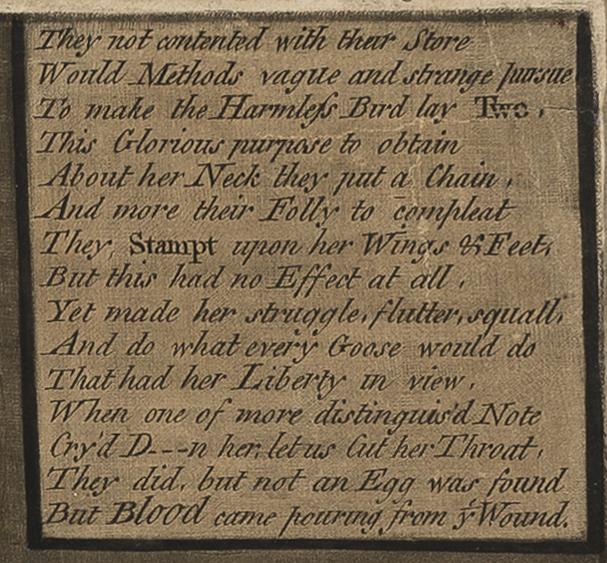 They not contented with their Store
Would Methods vague and strange pursue
To make the Harmleſs Bird lay Two,
This Glorious purpose to obtain
About her Neck they put a Chain,
And more their Folly to compleat
They, Stampt upon her Wings & Feet,
But this had no Effect at all,
Yet made her struggle, flutter, squall,
And do what every Goose would do
That had her Liberty in view,
When one of more distinguis'd Note
Cry'd D---n her, let us Cut her Throat,
They did, but not an Egg was found
But Blood came pouring from yͤ Wound.